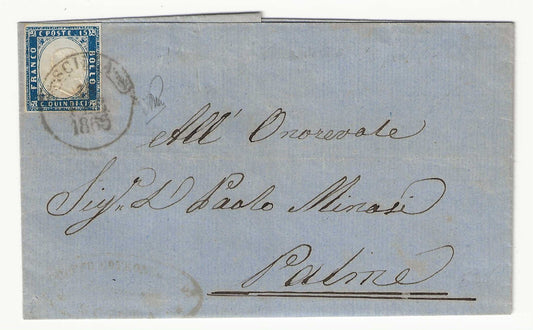 C POSTE 15
FRANCO
BOLLO
C QUINDICI
1863
All' Onorevole
Sigr. D Paolo Minasi
Palme